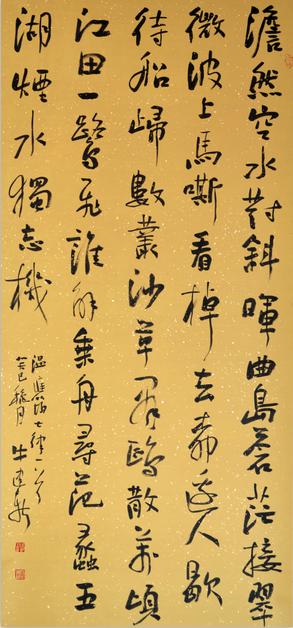 澹然空水對斜暉曲島蒼茫接翠
微波上馬嘶看棹去柳邊人歇
待船歸數叢沙草群鷗散萬頃
江田一鷺飛誰解乘舟尋范蠡五
湖煙水獨忘機
温庭筠七律一首
癸巳穐月 牛